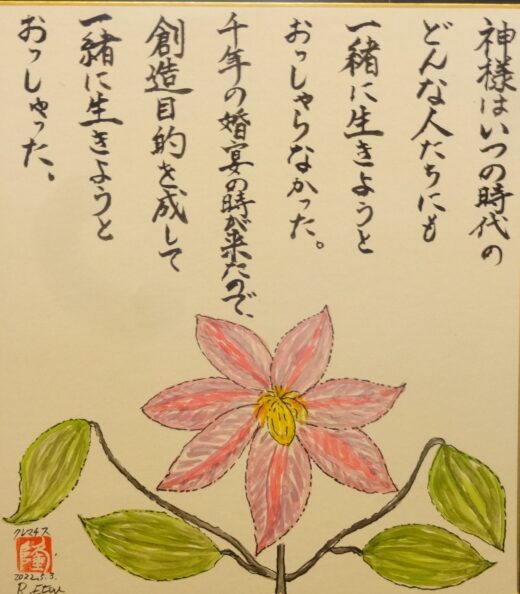 神様はいつの時代の
どんな人たちにも
一緒に生きようと
おっしゃらなかった。
千年の婚宴の時が来たので、
創造目的を成して
一緒に生きようと
おっしゃった。
クレマチス
2022.5.3.